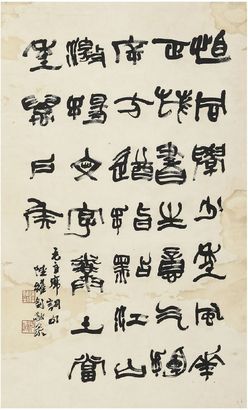 恰同學少年風華
正茂書生意气揮
斥方遒指點江山
激揚文字糞土當
年萬戶侯
毛主席詞句
陸維釗敬篆